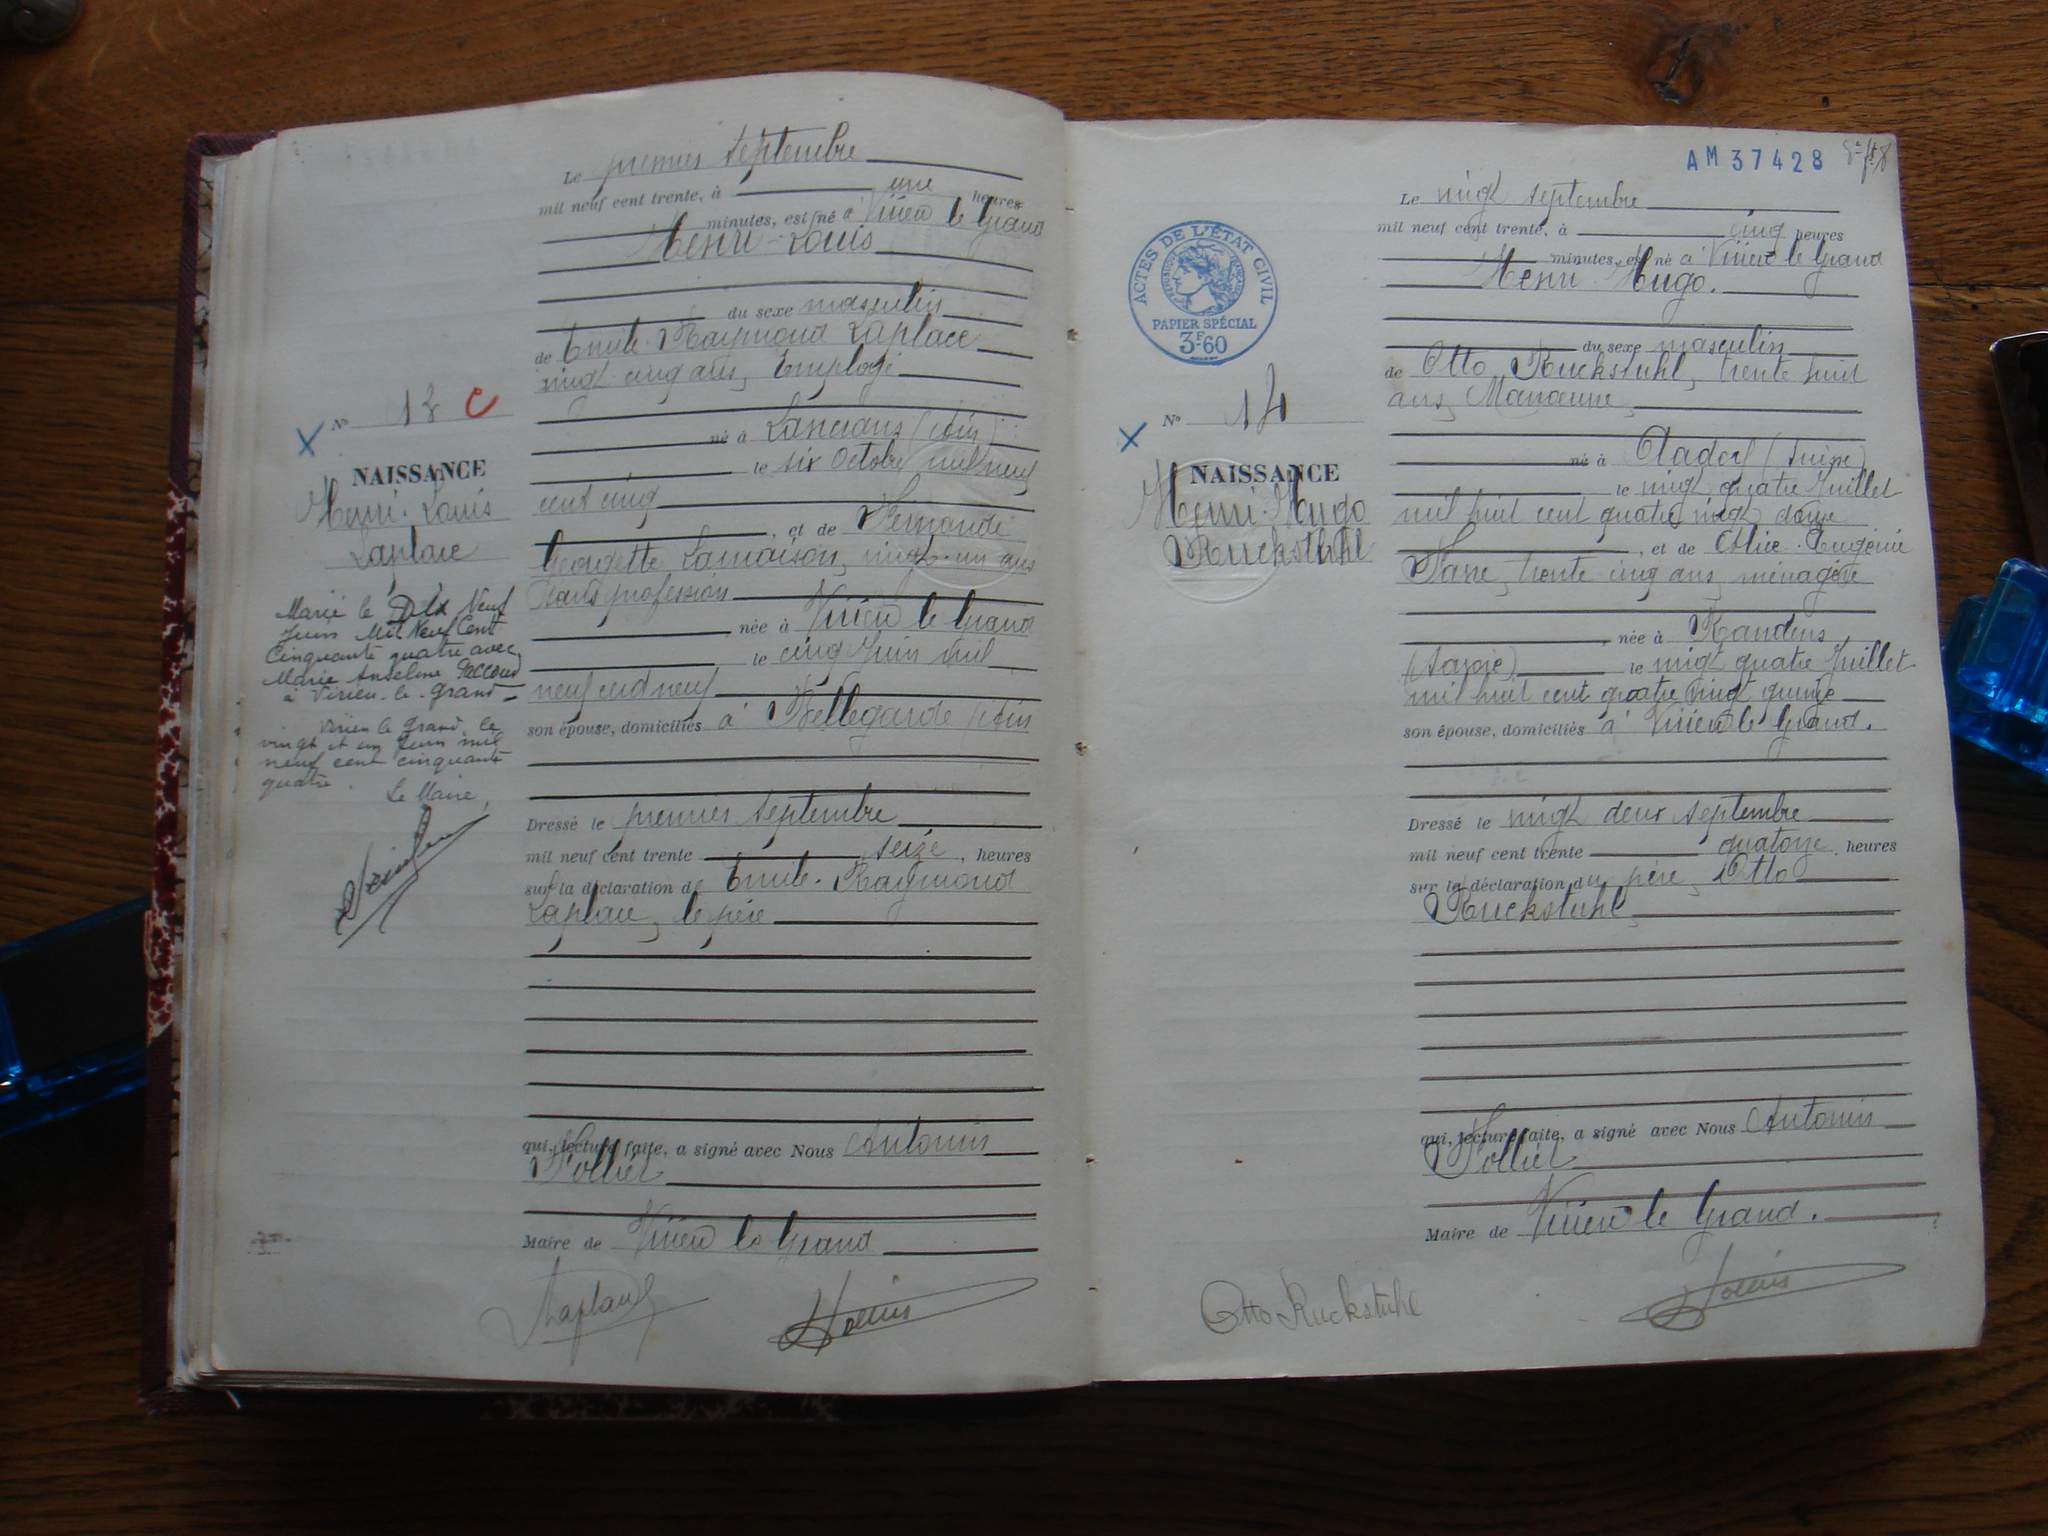 Le premier septembre
mil neuf cent trente, à une heures
minutes, est né à Virieu le Grand
Henri-Louis
du sexe masculin
de Emile-Raymond Laplace
vingt-cinq ans, Employé
né à (Ain)
le six Octobre mil neuf
cent cinq
, et de Fernande
Georgette Lamaison, vingt-un ans
sans profession
née à Virieu le Grand
le cinq Juin mil
neuf cent neuf
son épouse, domiciliés à Bellegarde (Ain
Dressé le premier septembre
mil neuf cent trente seize, heures
sur la déclaration de Emile-Raymond
Laplace, le père
qui, lecture faite, a signé avec Nous Antonin
Maire de Virieu le Grand
No 13 C
NAISSANCE
Henri-Louis
Laplace
Marié le Dix Neuf
Juin Mil Neuf Cent
Cinquante quatre avec
Marie Anselme
à Virieu-le-grand-
Virieu le Grand, le
vingt et un Juin mil
neuf cent cinquante
quatre. Le Maire,
Laplace
AM 37428
Le vingt septembre
mil neuf cent trente, à cinq heures
minutes, est né à Virieu le Grand
Henri-Hugo.
du sexe masculin
de Otto Ruckstuhl, trente huit
ans, Manœuvre,
né à Aadorf (Suisse)
le vingt quatre Juillet
mil huit cent quatre vingt douze
, et de Alice-Eugénie
trente cinq ans, ménagère
née à Randens,
(Savoie) le vingt quatre Juillet
mil huit cent quatre vingt quinze
son épouse, domiciliés à Virieu le Grand.
Dressé le vingt deux septembre
mil neuf cent trente quatorze, heures
sur la déclaration du père, Otto
Ruckstuhl,
qui, lecture faite, a signé avec Nous Antonin
Maire de Virieu le Grand.
ACTES DE L'ÉTAT CIVIL
RÉPUBLIQUE FRANÇAISE
PAPIER SPÉCIAL
3F60
No 14
NAISSANCE
Henri-Hugo
Ruckstuhl
Otto Ruckstuhl